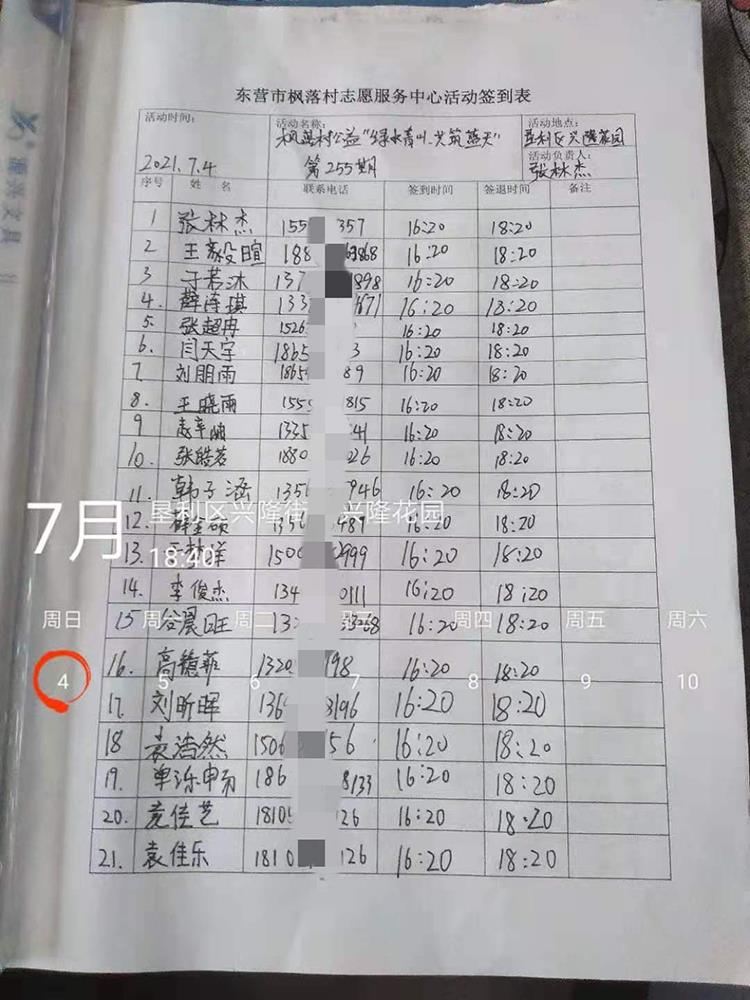 东营市枫落村志愿服务中心活动签到表
活动时间: 活动名称: 枫落村公益"绿水青山、共筑蓝天" 活动地点: 垦利区兴隆花园
2021.7.4 第255期 活动负责人: 张林杰
序号 姓名 联系电话 签到时间 签退时间 备注
1 张林杰 155 357 16:20 18:20
2 王毅暄 188 16:20 18:20
3 于若沐 137 898 16:20 18:20
4. 薛涛琪 133 671 16:20 18:20
5. 张超冉 1526 16:20 18:20
6. 闫天宇 1865 3 16:20 18:20
7. 刘朋雨 1865 89 16:20 18:20
8. 王晓雨 155 815 16:20 18:20
9 1335 41 16:20 18:20
10. 张皓若 1880 26 16:20 18:20
11. 韩子涵 1356 946 16:20 18:20
7月 垦利区兴隆街 兴隆花园
12. 薛金硕 1356 487 16:20 18:20
18:40
13. 1500 999 16:20 18:20
14. 李俊杰 134 0111 16:20 18:20
周日 周一 周二 周三 周四 周五 周六
15 谷晨旺 13 3268 16:20 18:20
16. 高德菲 1320 198 16:20 18:20
4 5 6 7 8 9 10
17. 刘昕晖 136 3196 16:20 18:20
18 袁浩然 1506 56 16:20 18:20
19. 186 8133 16:20 18:20
20. 袁佳艺 1810 126 16:20 18:20
21. 袁佳乐 1810 126 16:20 18:20